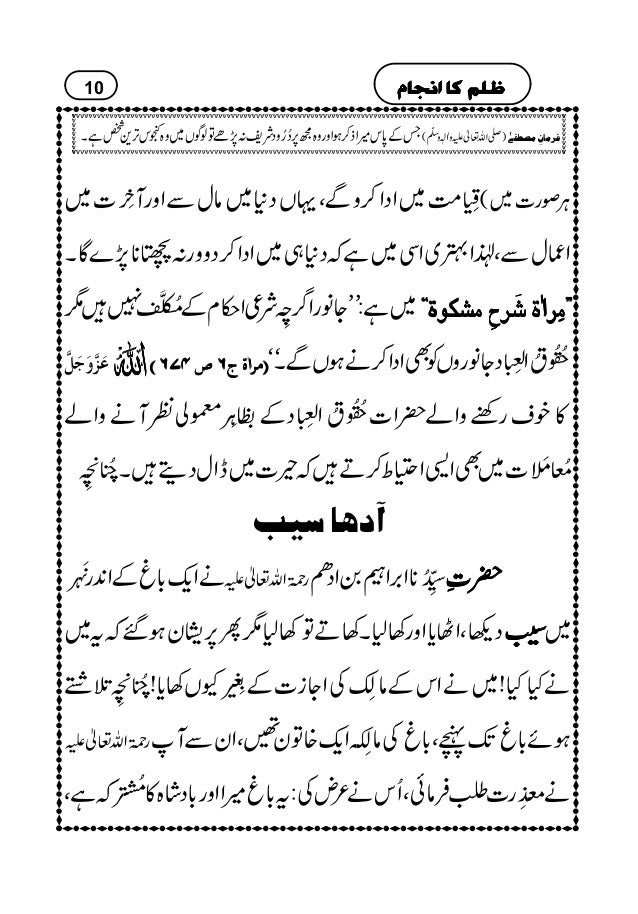 ظلم کا انجام
10
فرمانِ مصطفےٰ (صلی اللہ تعالیٰ علیہ والہ وسلم) جس کے پاس میرا ذکر ہوا اور وہ مجھ پر دُرُود شریف نہ پڑھے تو لوگوں میں وہ کنجوس ترین شخص ہے۔
ہر صورت میں) قِیامت میں ادا کرو گے، یہاں دنیا میں مال سے اور آخِرت میں
اعمال سے، لہٰذا بہتری اسی میں ہے کہ دنیا ہی میں ادا کر دو ورنہ پچھتانا پڑے گا۔
”مِراٰۃ شَرحِ مشکوۃ“ میں ہے: ’’جانور اگرچِہ شرعی احکام کے مُکلَّف نہیں ہیں مگر
حُقُوقُ العِباد جانوروں کو بھی ادا کرنے ہوں گے۔‘‘ (مراۃ ج۶ ص ۶۷۴) اَللّٰہُ عَزَّوَجَلَّ
کا خوف رکھنے والے حضرات حُقُوقُ العِباد کے بظاہر معمولی نظر آنے والے
مُعامَلات میں بھی ایسی احتیاط کرتے ہیں کہ حیرت میں ڈال دیتے ہیں۔ چُنانچِہ
آدھا سیب
حضرتِ سیِّدُنا ابراہیم بن ادھم رحمۃ اللہ تعالیٰ علیہ نے ایک باغ کے اندر نَہر
میں سیب دیکھا، اٹھایا اور کھا لیا۔ کھاتے تو کھا لیا مگر پھر پریشان ہو گئے کہ یہ میں
نے کیا کیا! میں نے اس کے مالِک کی اجازت کے بِغیر کیوں کھایا! چُنانچِہ تلاشتے
ہوئے باغ تک پہنچے، باغ کی مالِکہ ایک خاتون تھیں، ان سے آپ رحمۃ اللہ تعالیٰ علیہ
نے معذِرت طلب فرمائی، اُس نے عرض کی: یہ باغ میرا اور بادشاہ کا مُشتَرکہ ہے،